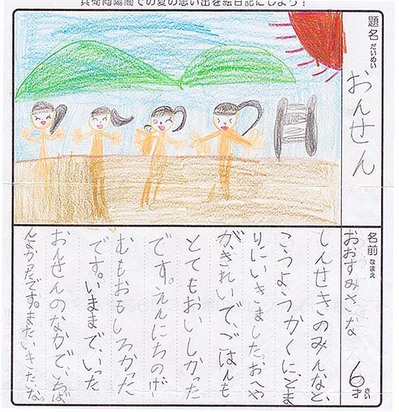 兵衛向陽閣での夏の思い出を絵日記にしよう!
題名
だいめい
おんせん
名前
なまえ
おおすみさな
6才
さい
しんせきのみんなと、
こうようかくに、とま
りにいきました。おへや
がきれいで、ごはんも
とてもおいしかった
です。えんにちのげー
むもおもしろかった
です。いままで、いった
おんせんのなかで、いちば
んよかたです。またいきたいな。